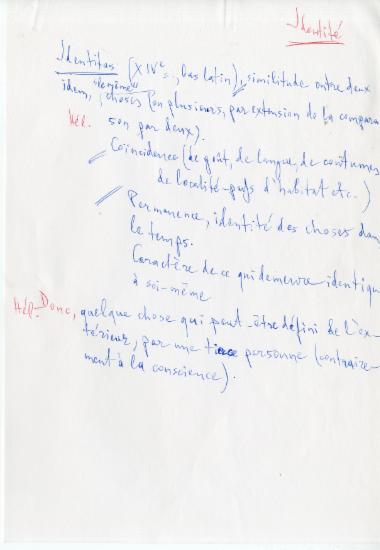 Identité
Identitas (XIVe s., bas latin), similitude entre deux
idem, "le même" choses (ou plusieurs, par extension de la compara
Hép. son par deux).
Coïncidence (de goût, de langue, de coutumes
de localité - d'habitat etc.)
Permanence, identité des choses dans
le temps.
Caractère de ce qui demeure identiq
à soi-même
Hép. Donc, quelque chose qui peut être défini de l'ex-
térieur, par une tierce personne (contraire
ment à la conscience).